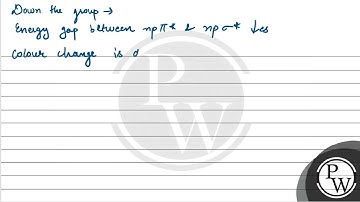 Down the group →
Energy gap between npπ* & npσ* ↓es
Colour change is d
P
W
P
W